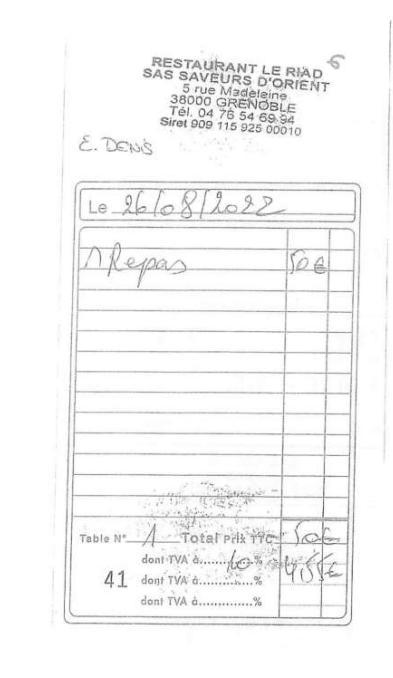 6
RESTAURANT LE RIAD
SAS SAVEURS D'ORIENT
5 rue Madeleine
38000 GRENOBLE
Tél. 04 76 54 69 94
Siret 909 115 925 00010
E. DENIS
Le 26/08/2022
1 Repas 50€
Table N° 1 Total Prix TTC 50€
dont TVA à........10.% 4,55€
41 dont TVA à..............%
dont TVA à..............%